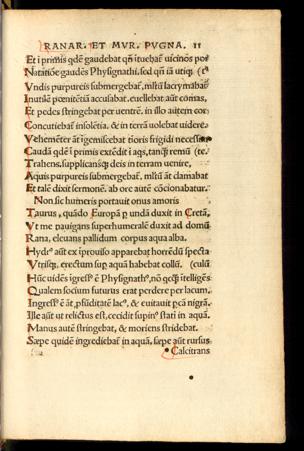 RANAR. ET MVR. PVGNA. 11
Et i primis qdē gaudebat qn̄ ītuebat̄ uicinos por
Natatiōe gaudēs Physignathi. sed qn̄ iā utiq; (t⁹
Vndis purpureis submergebat̄, mltū lacrymabat̄
Inutilē pœnitētiā accusabat. euellebat aūt comas,
Et pedes stringebat per uentrē. in illo autem cor
Concutiebat̄ insolētia. & in terrā uolebat uidere.
Vehemēter āt īgemiscebat tioris frigidi necessi
Caudā qdē ī primis extēdit ī aqs, tanq̄ remū (te.
Trahens. supplicansq; deis in terram uenire,
Aquis purpureis submergebat̄. mltū āt clamabat
Et talē dixit sermonē. ab ore autē cōcionabatur.
Non sic humeris portauit onus amoris
Taurus, quādo Europā p undā duxit in Cretā,
Vt me nauigans superhumeralē duxit ad domū
Rana, eleuans pallidum corpus aqua alba.
Hydr⁹ aūt ex īprouiso apparebat, horrēdū specta
Vtrisq;. erectum sup aquā habebat collū. (culū
Hūc uidēs īgress⁹ ē Physignath⁹, nō qcq̄ ītelligēs
Qualem socium futurus erat perdere per lacum.
Ingress⁹ ē āt, pfūditatē lac⁹, & euitauit pcā nigrā.
Ille aūt ut relictus est, cecidit supin⁹ stati in aquā.
Manus autē stringebat, & moriens stridebat.
Sæpe quidē ingrediebat̄ in aquā, sæpe aūt rursus
Calcitrans